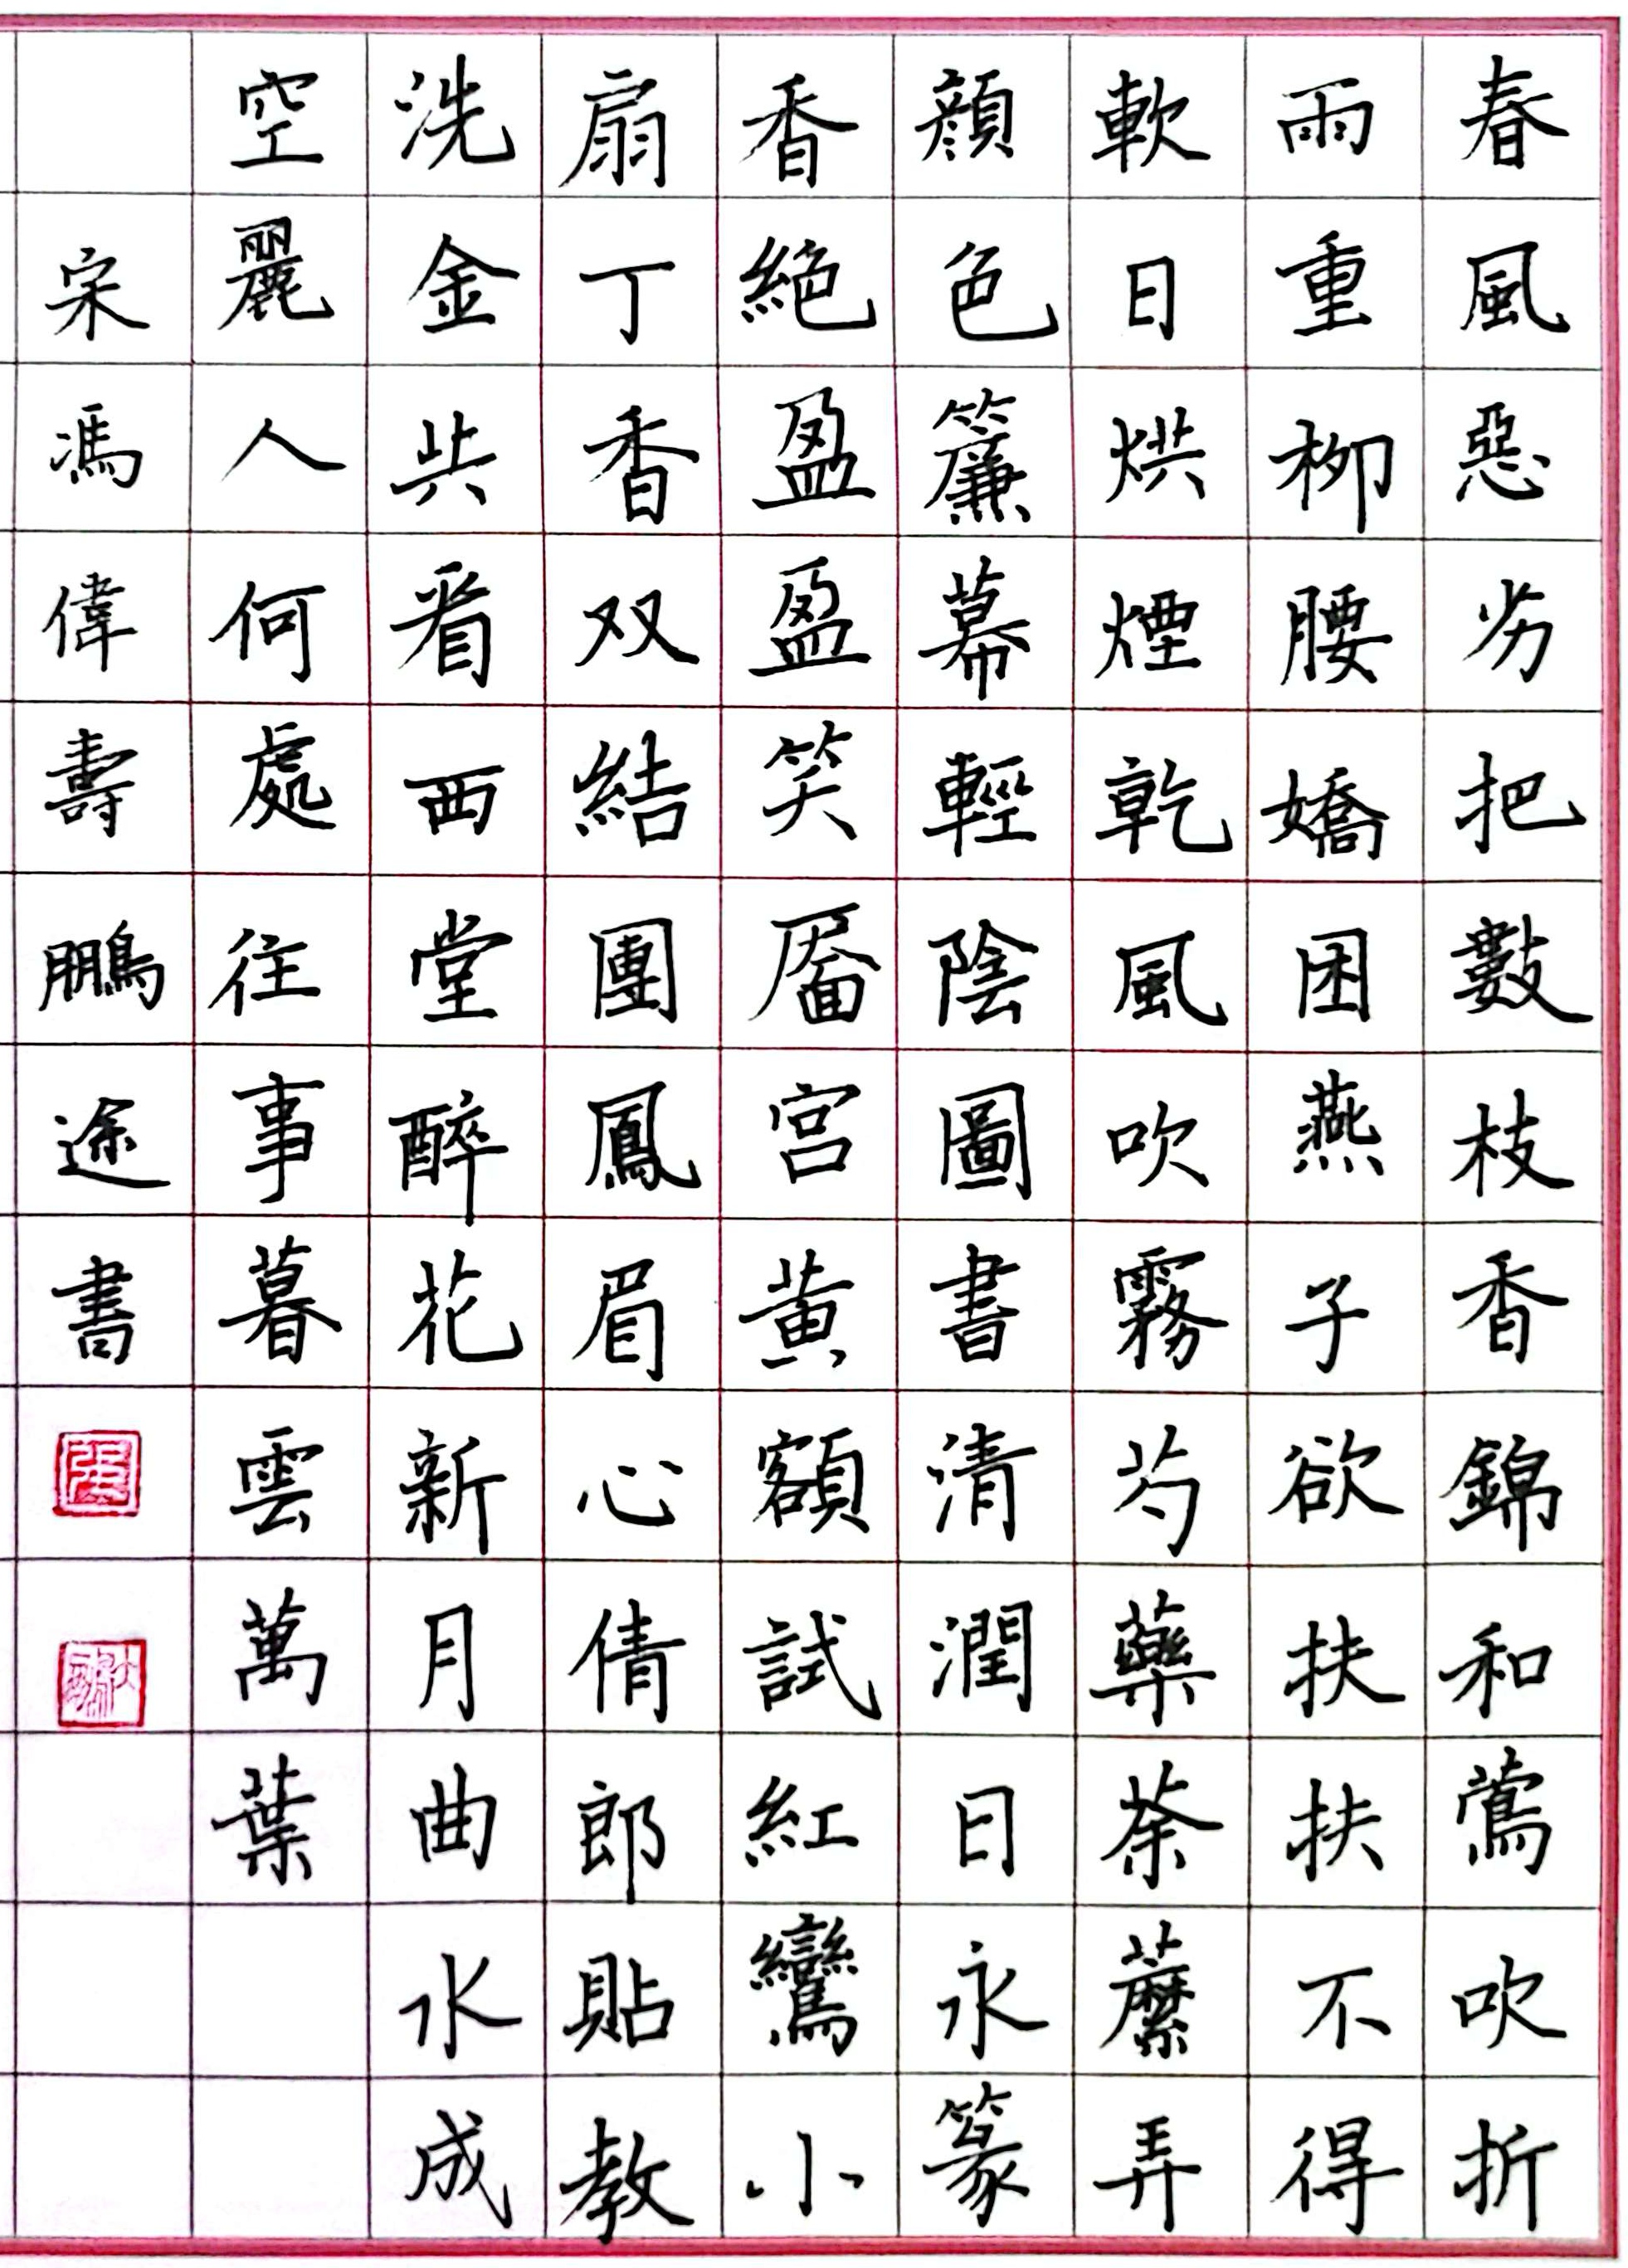 春風惡劣把數枝香錦和鶯吹折
雨重柳腰嬌困燕子欲扶扶不得
軟日烘煙乾風吹霧芍藥荼蘼弄
顏色簾幕輕陰圖書清潤日永篆
香絕盈盈笑靨宮黃額試紅鸞小
扇丁香双結團鳳眉心倩郎貼教
洗金共看西堂醉花新月曲水成
空麗人何處往事暮雲萬葉
宋馮偉壽鵬途書